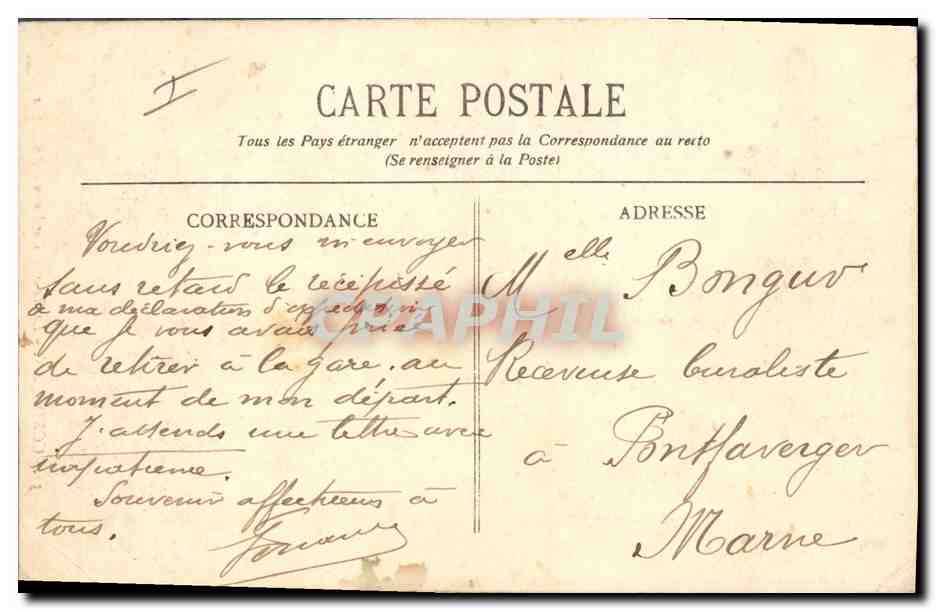 I
CARTE POSTALE
Tous les Pays étranger n'acceptent pas la Correspondance au recto
(Se renseigner à la Poste)
CORRESPONDANCE
Voudriez-vous m'envoyer
sans retard le récépissé
de ma déclaration d'expédition
que je vous avais prié
de retirer à la gare, au
moment de mon départ.
J'attends une lettre avec
impatience.
Souvenir affectueux à
tous.
ADRESSE
Melle
Receveuse buraliste
à Pontfaverger
Marne
CPAPHIL